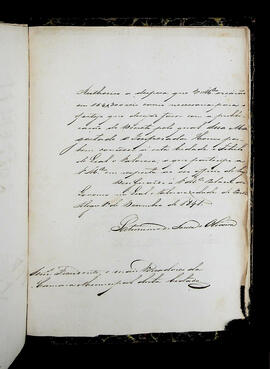 Authoriso a despesa que V. M.ces orçárão
em reis como necessaria para o
festejo que deverá fazer com a publi-
cação do Decreto pelo qual Sua Ma-
gestade o Imperador Houve por
bem conferir a esta Cidade o Titulo
de Leal e Valorosa, o que participo a
V. M.ces em resposta ao seo officio de
Deos Guarde a V. M.ces Palacio do
Governo na Leal e Valorosa Cidade de Porto
Alegre de Novembro de 1841.
Saturnino de Souza e Oliveira
Snr.es Presidente, e mais Vereadores da
Camara Municipal desta Cidade